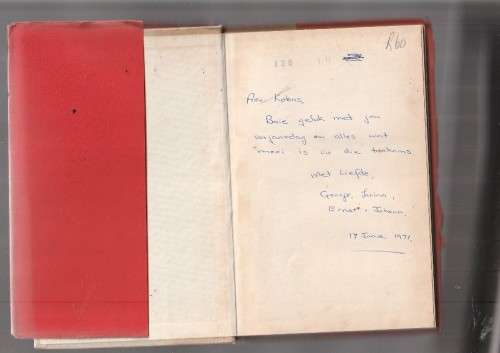 R60
Kobus,
Baie geluk met jou
verjaarsdag en alles wat
mooi is in die toekoms
Met Liefde,
George,
Ernst + Johann.
17 Junie 1971.